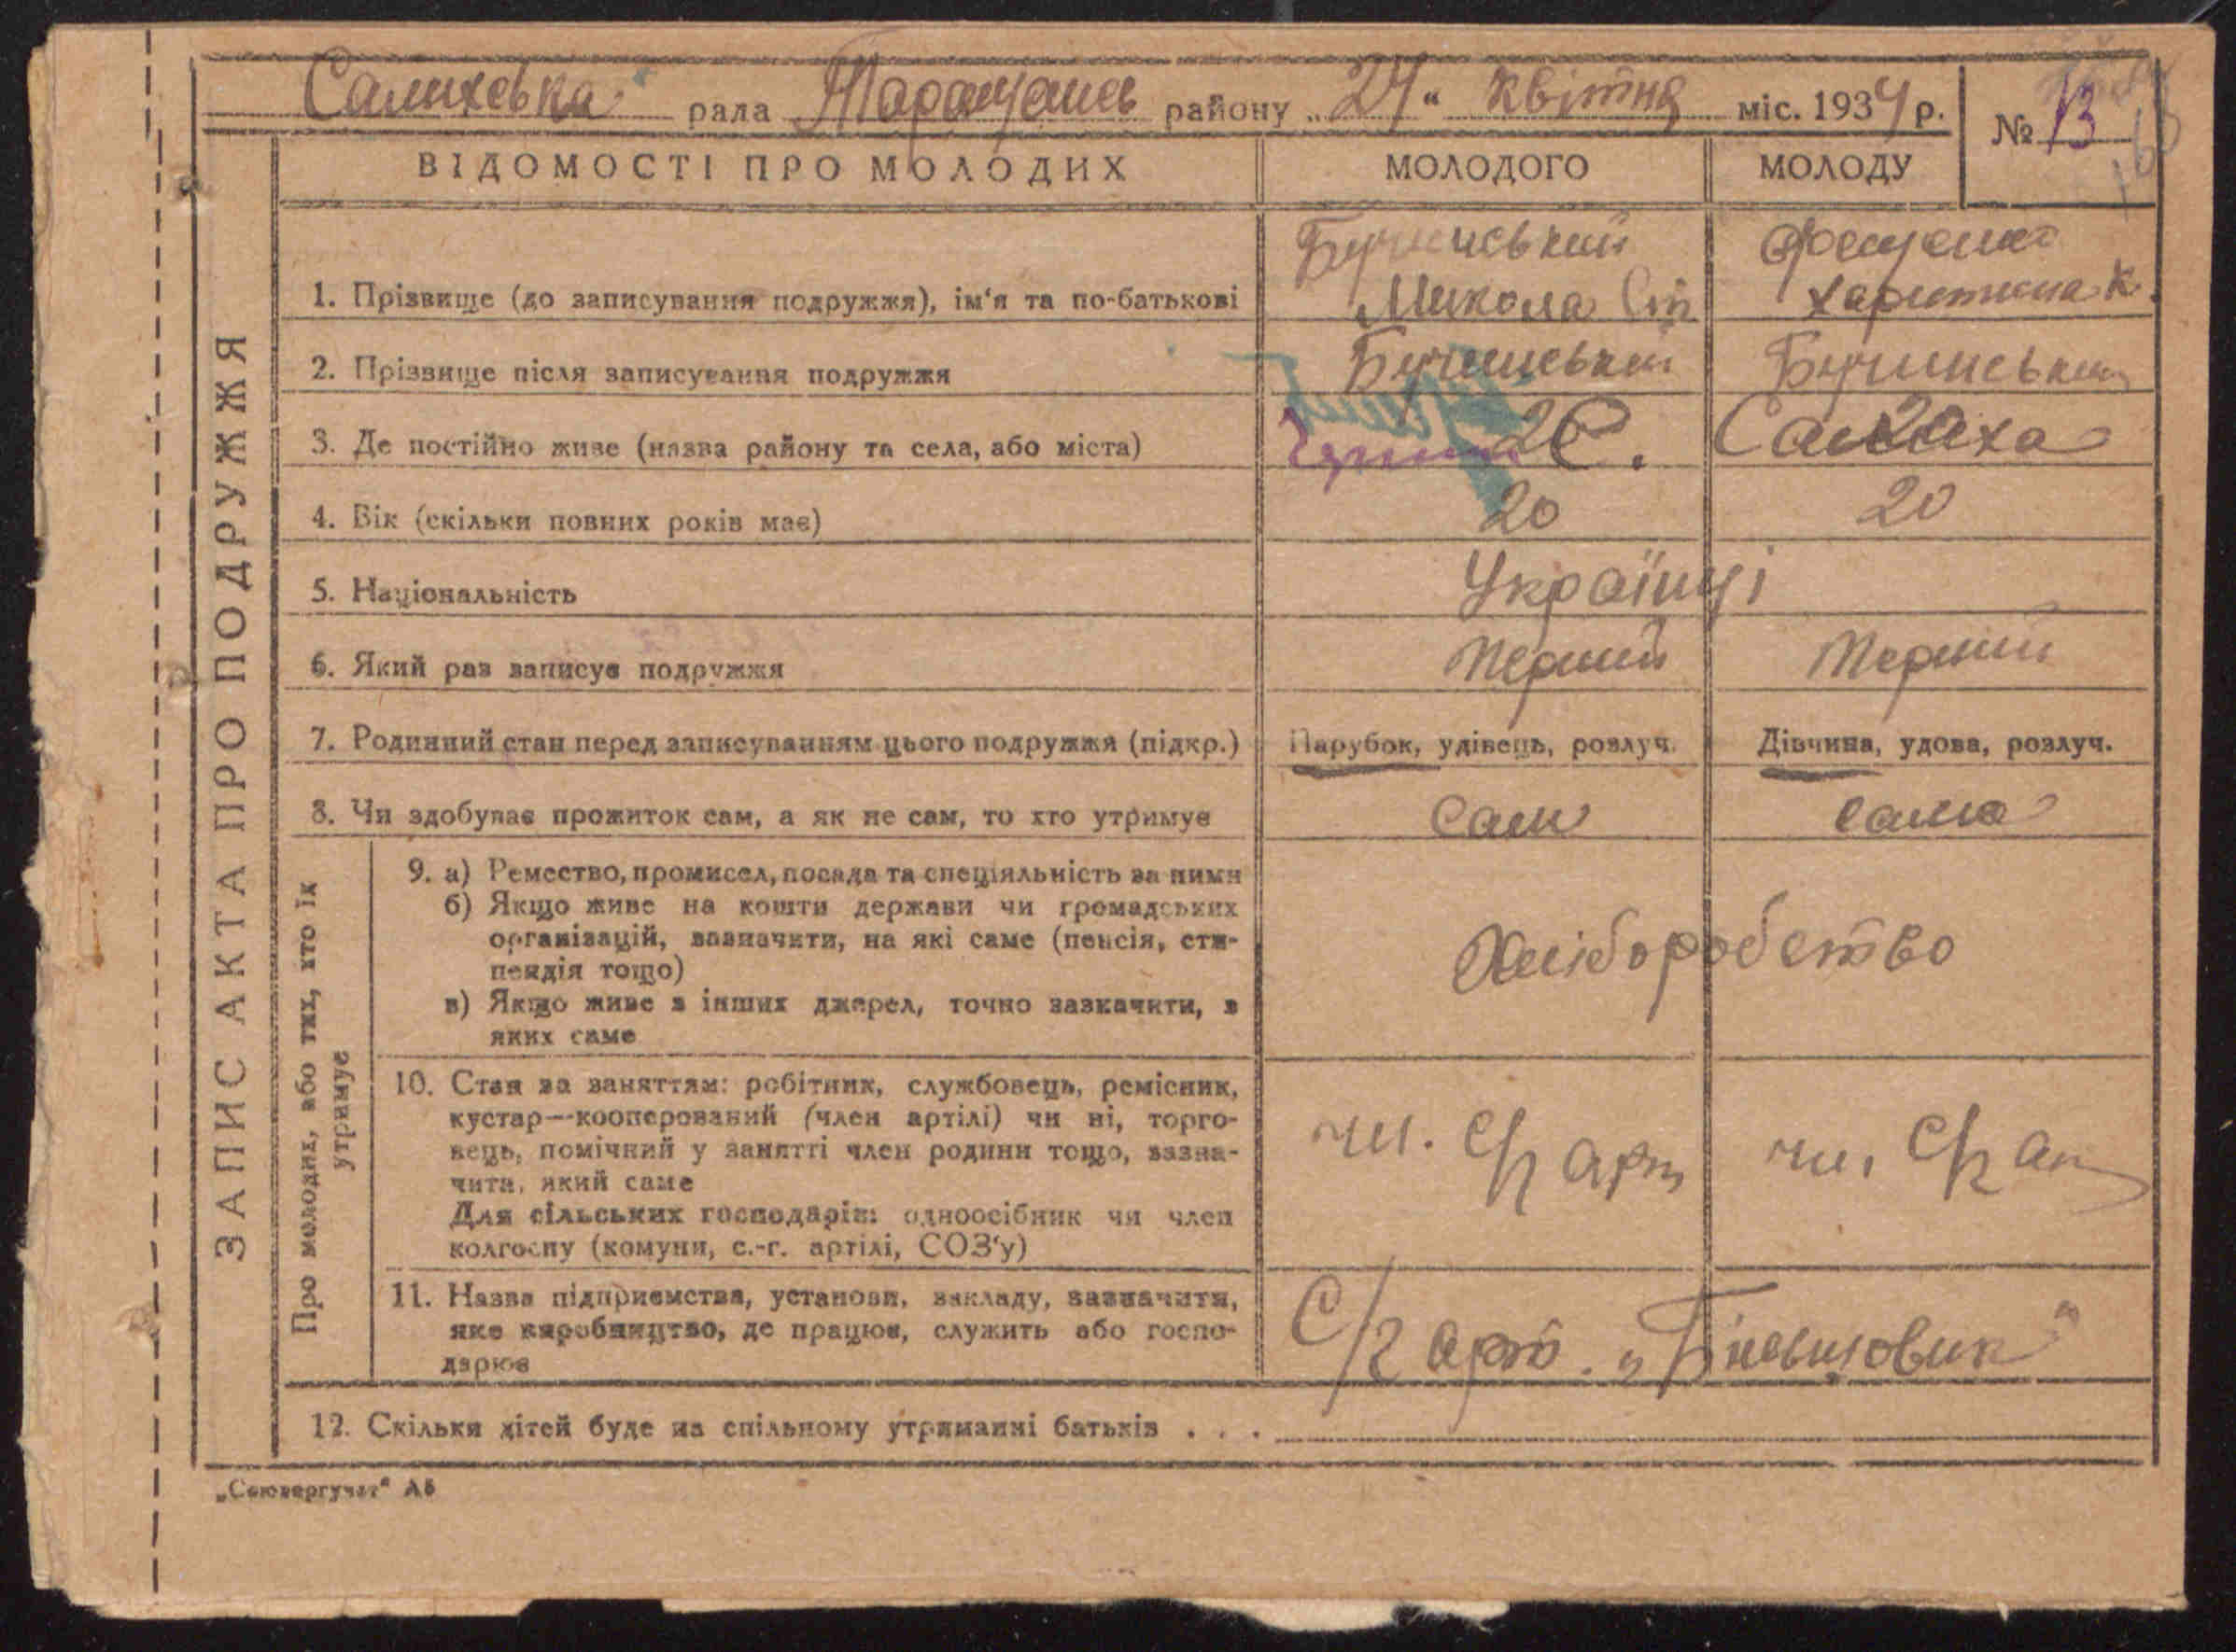 Салихська рада Таращанськ району „24“ квітня міс. 1934 р.
№ 13
ВІДОМОСТІ ПРО МОЛОДИХ МОЛОДОГО МОЛОДУ
ЗАПИС АКТА ПРО ПОДРУЖЖЯ
1. Прізвище (до записування подружжя), ім‘я та по-батькові
Микола Ст
Харитина К.
2. Прізвище після записування подружжя
3. Де постійно живе (назва району та села, або міста) Салиха
4. Вік (скільки повних років має) 20 20
5. Національність Українці
6. Який раз записує подружжя Перший Перший
7. Родинний стан перед записуванням цього подружжя (підкр.) Парубок, удівець, розлуч. Дівчина, удова, розлуч.
8. Чи здобуває прожиток сам, а як не сам, то хто утримує Сам сама
Про молодих, або тих, хто їх
утримує
9. а) Ремество, промисел, посада та спеціяльність за ними
б) Якщо живе на кошти держави чи громадських
організацій, зазначити, на які саме (пенсія, сти-
пендія тощо)
в) Якщо живе з інших джерел, точно зазначити, з
яких саме
Хліборобство
10. Стан за заняттям: робітник, службовець, ремісник,
кустар—кооперований (член артілі) чи ні, торго-
вець, помічний у занятті член родини тощо, зазна-
чити, який саме
Для сільських господарів: одноосібник чи член
колгоспу (комуни, с.-г. артілі, СОЗ‘у)
чл. с/г арт чл. с/г ар
11. Назва підприємства, установи, закладу, зазначити,
яке виробництво, де працює, служить або госпо-
дарює
С/г арт. „Більшовик“
12. Скільки дітей буде на спільному утриманні батьків . . .
„Союзоргучет“ А5